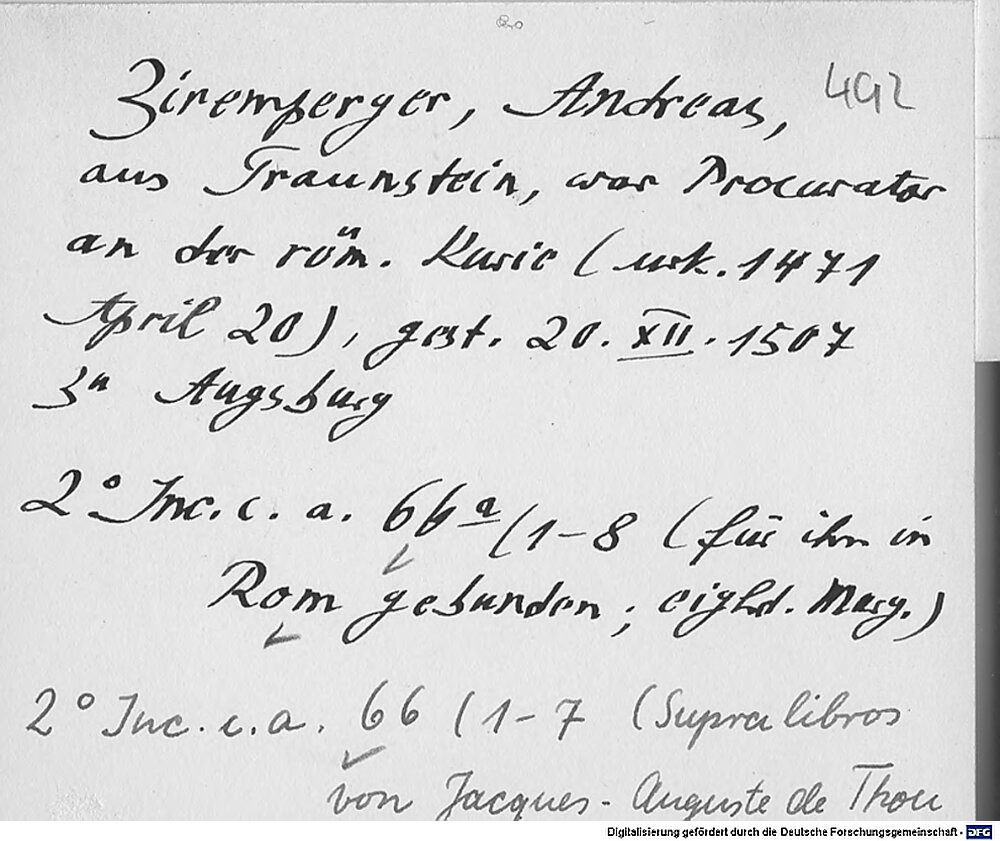 Zirenperger, Andreas, 492
aus Traunstein, war Procurator
an der röm. Kurie (urk. 1471
April 20), gest. 20. XII. 1507
zu Augsburg
2° Inc. c. a. 66a/1-8 (für ihn in
Rom gebunden; eighd. Marg.)
2° Inc. c. a. 66/1-7 (Supralibros
von Jacques-Auguste de Thou
Digitalisierung gefördert durch die Deutsche Forschungsgemeinschaft - DFG